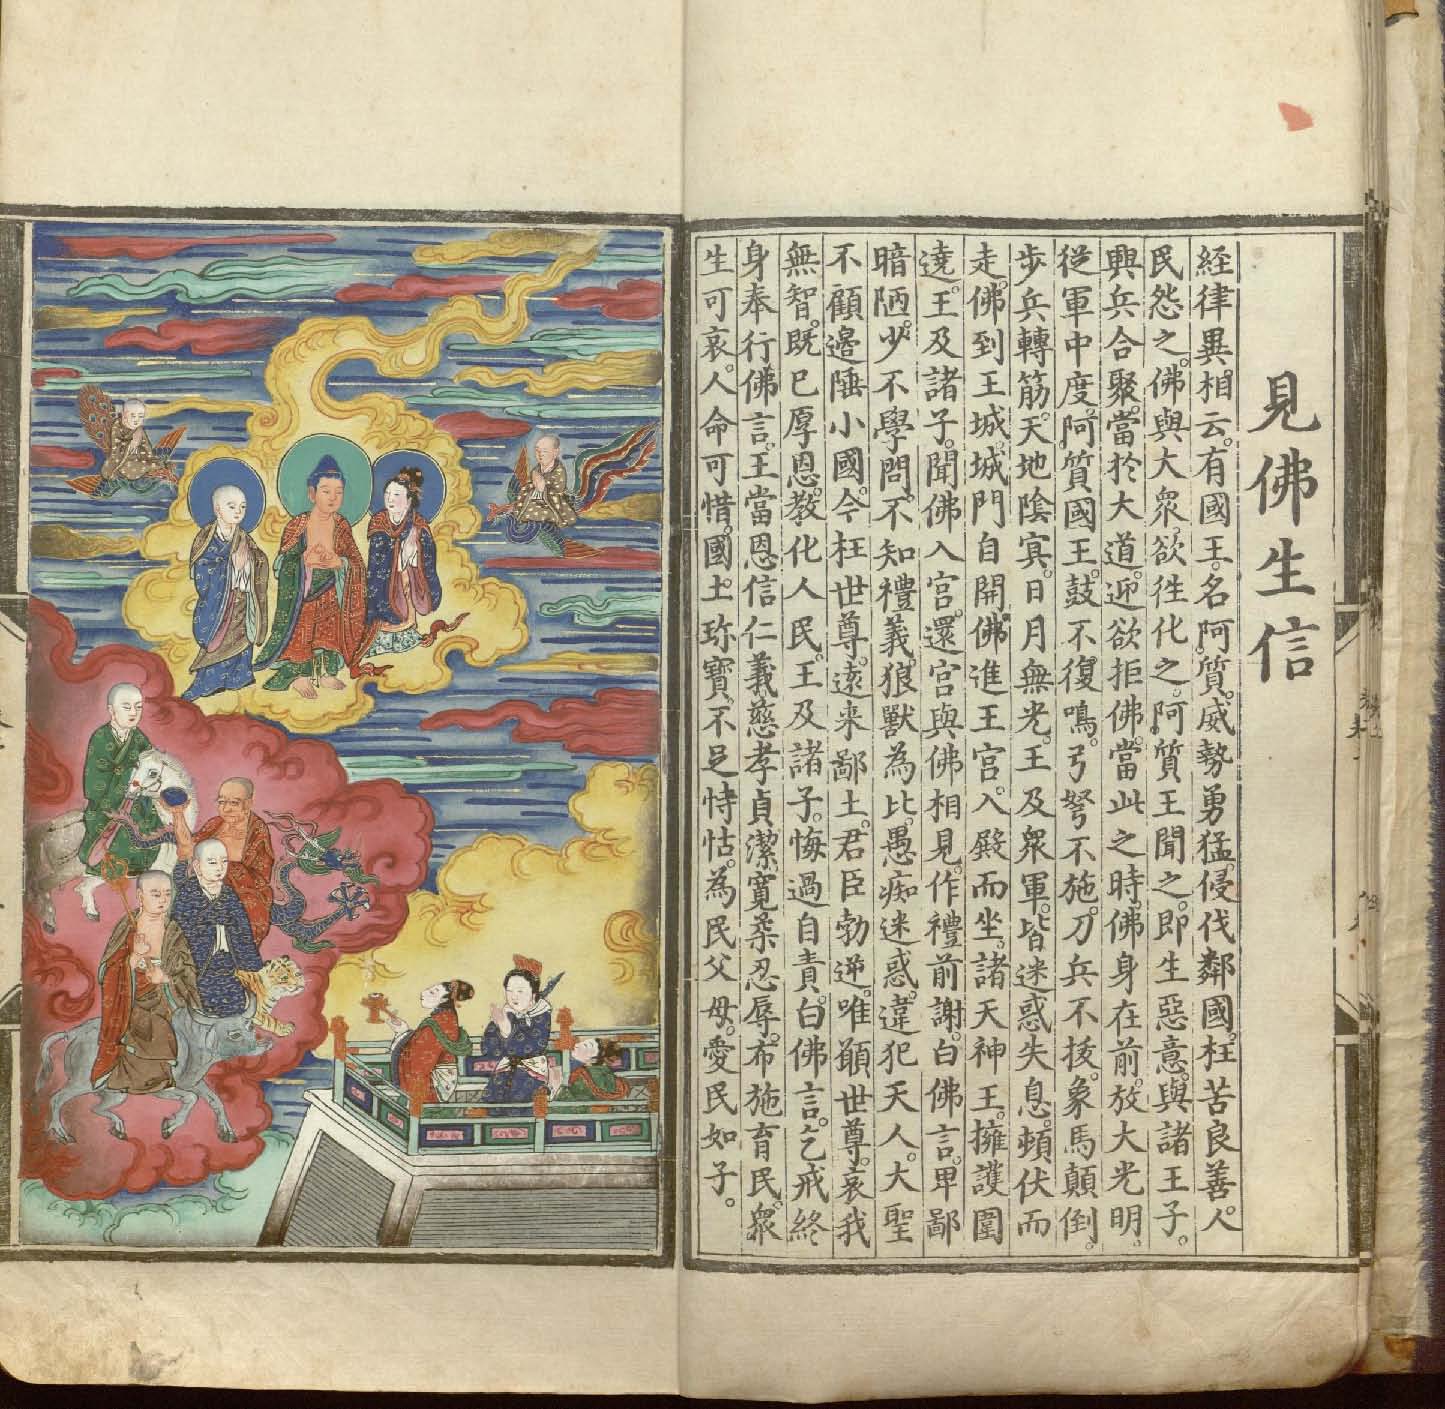 見佛生信
經律異相云。有國王。名阿質。威勢勇猛。侵伐鄰國。枉苦良善。人
民怨之。佛與大眾欲徃化之。阿質王聞之。即生惡意。與諸王子。
興兵合聚。當於大道。迎欲拒佛。當此之時。佛身在前。放大光明。
從軍中度。阿質國王。鼓不復鳴。弓弩不施。刀兵不拔。象馬顛倒。
步兵轉筋。天地陰寘。日月無光。王及眾軍。皆迷惑失息。頓伏而
走。佛到王城。城門自開。佛進王宮。入殿而坐。諸天神王。擁護圍
遶。王及諸子。聞佛入宮。還宮與佛相見。作禮前謝。白佛言。卑鄙
暗陋。少不學問。不知禮義。狼獸為比。愚痴迷惑。違犯天人。大聖
不顧邊陲小國。今枉世尊。遠来鄙土。君臣勃逆。唯願世尊。哀我
無智。既已厚恩。教化人民。王及諸子。悔過自責。白佛言。乞戒終
身奉行佛言。王當恩信仁義。慈孝貞潔。寬柔忍辱。布施育民。眾
生可哀。人命可惜。國土珍寶。不足恃怙。為民父母。愛民如子。